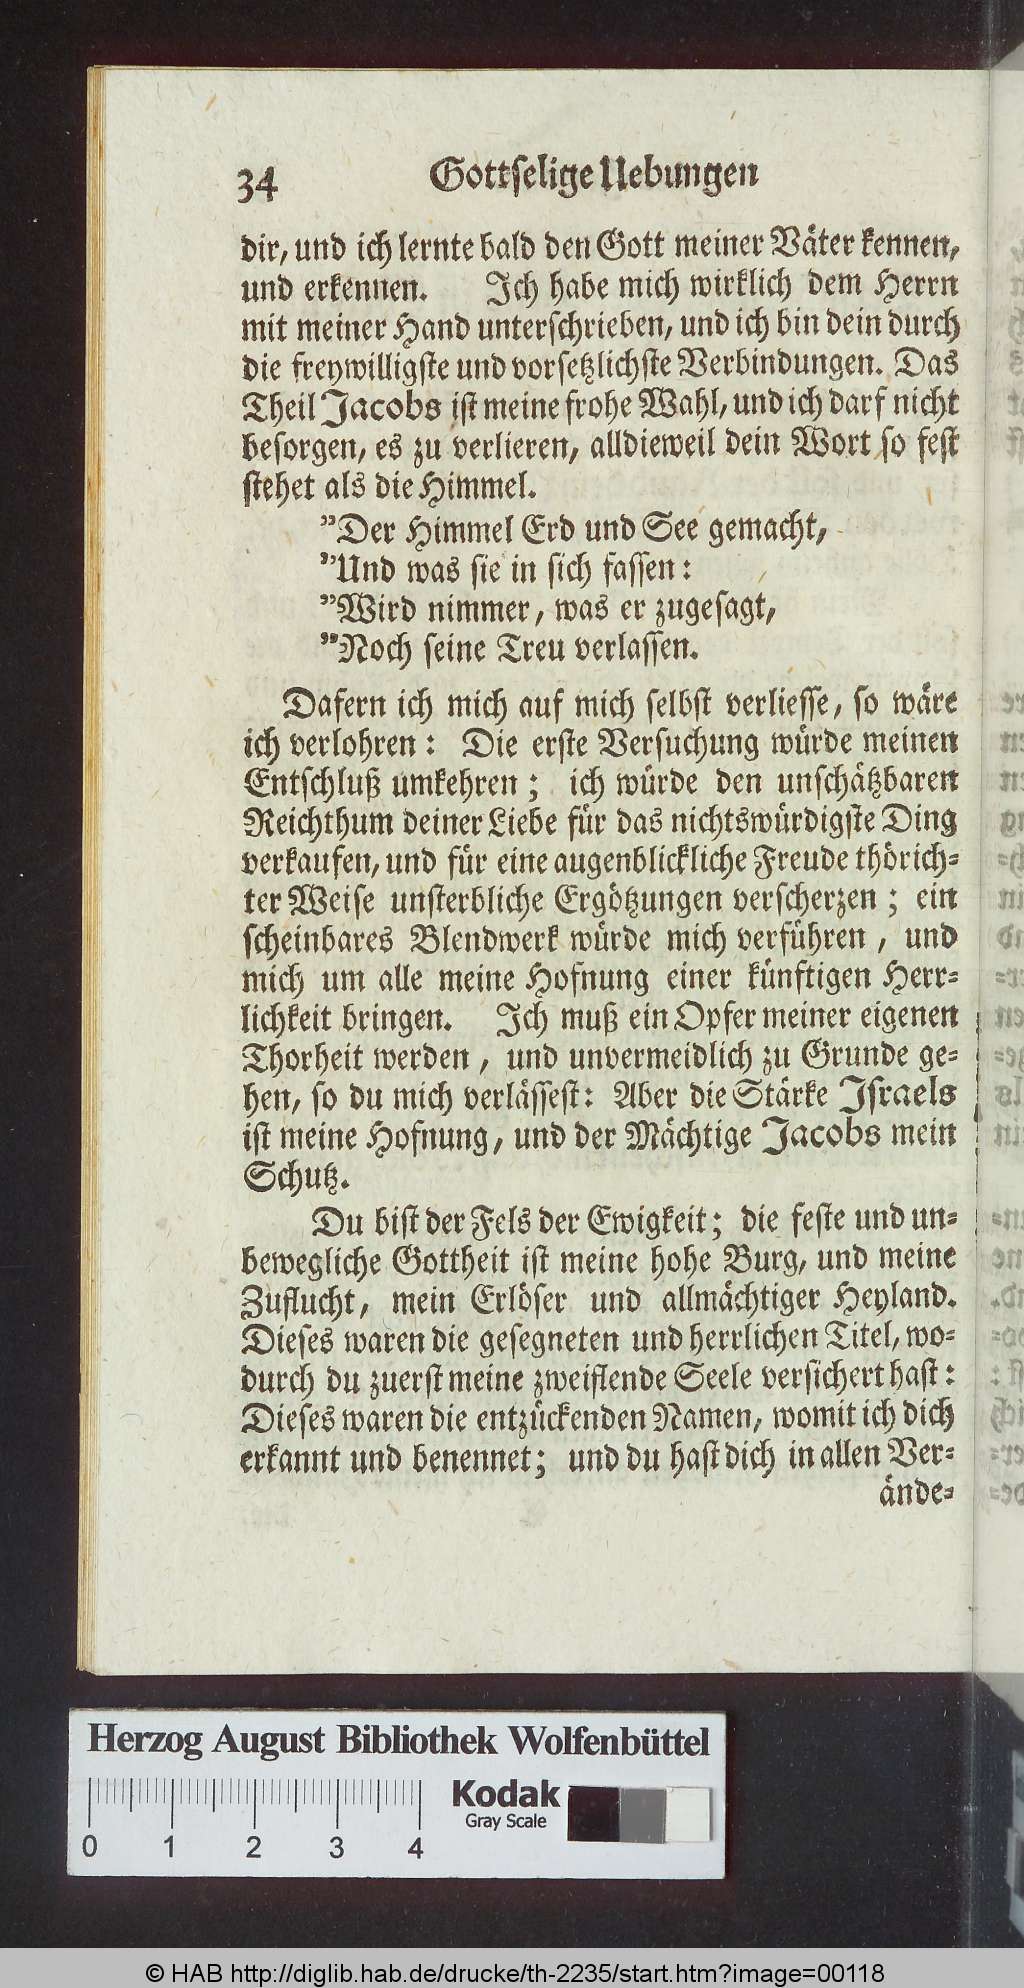 34 Gottselige Uebungen
dir, und ich lernte bald den Gott meiner Väter kennen,
und erkennen. Ich habe mich wirklich dem Herrn
mit meiner Hand unterschrieben, und ich bin dein durch
die freywilligste und vorsetzlichste Verbindungen. Das
Theil Jacobs ist meine frohe Wahl, und ich darf nicht
besorgen, es zu verlieren, alldieweil dein Wort so fest
stehet als die Himmel.
"Der Himmel Erd und See gemacht,
"Und was sie in sich fassen:
"Wird nimmer, was er zugesagt,
"Noch seine Treu verlassen.
Dafern ich mich auf mich selbst verliesse, so wäre
ich verlohren: Die erste Versuchung würde meinen
Entschluß umkehren; ich würde den unschätzbaren
Reichthum deiner Liebe für das nichtswürdigste Ding
verkaufen, und für eine augenblickliche Freude thörich-
ter Weise unsterbliche Ergötzungen verscherzen; ein
scheinbares Blendwerk würde mich verführen, und
mich um alle meine Hofnung einer künftigen Herr-
lichkeit bringen. Ich muß ein Opfer meiner eigenen
Thorheit werden, und unvermeidlich zu Grunde ge-
hen, so du mich verlässest: Aber die Stärke Israels
ist meine Hofnung, und der Mächtige Jacobs mein
Schutz.
Du bist der Fels der Ewigkeit; die feste und un-
bewegliche Gottheit ist meine hohe Burg, und meine
Zuflucht, mein Erlöser und allmächtiger Heyland.
Dieses waren die gesegneten und herrlichen Titel, wo-
durch du zuerst meine zweiflende Seele versichert hast:
Dieses waren die entzückenden Namen, womit ich dich
erkannt und benennet; und du hast dich in allen Ver-
ände-
Herzog August Bibliothek Wolfenbüttel
Kodak
Gray Scale
0 1 2 3 4
© HAB http://diglib.hab.de/drucke/th-2235/start.htm?image=00118